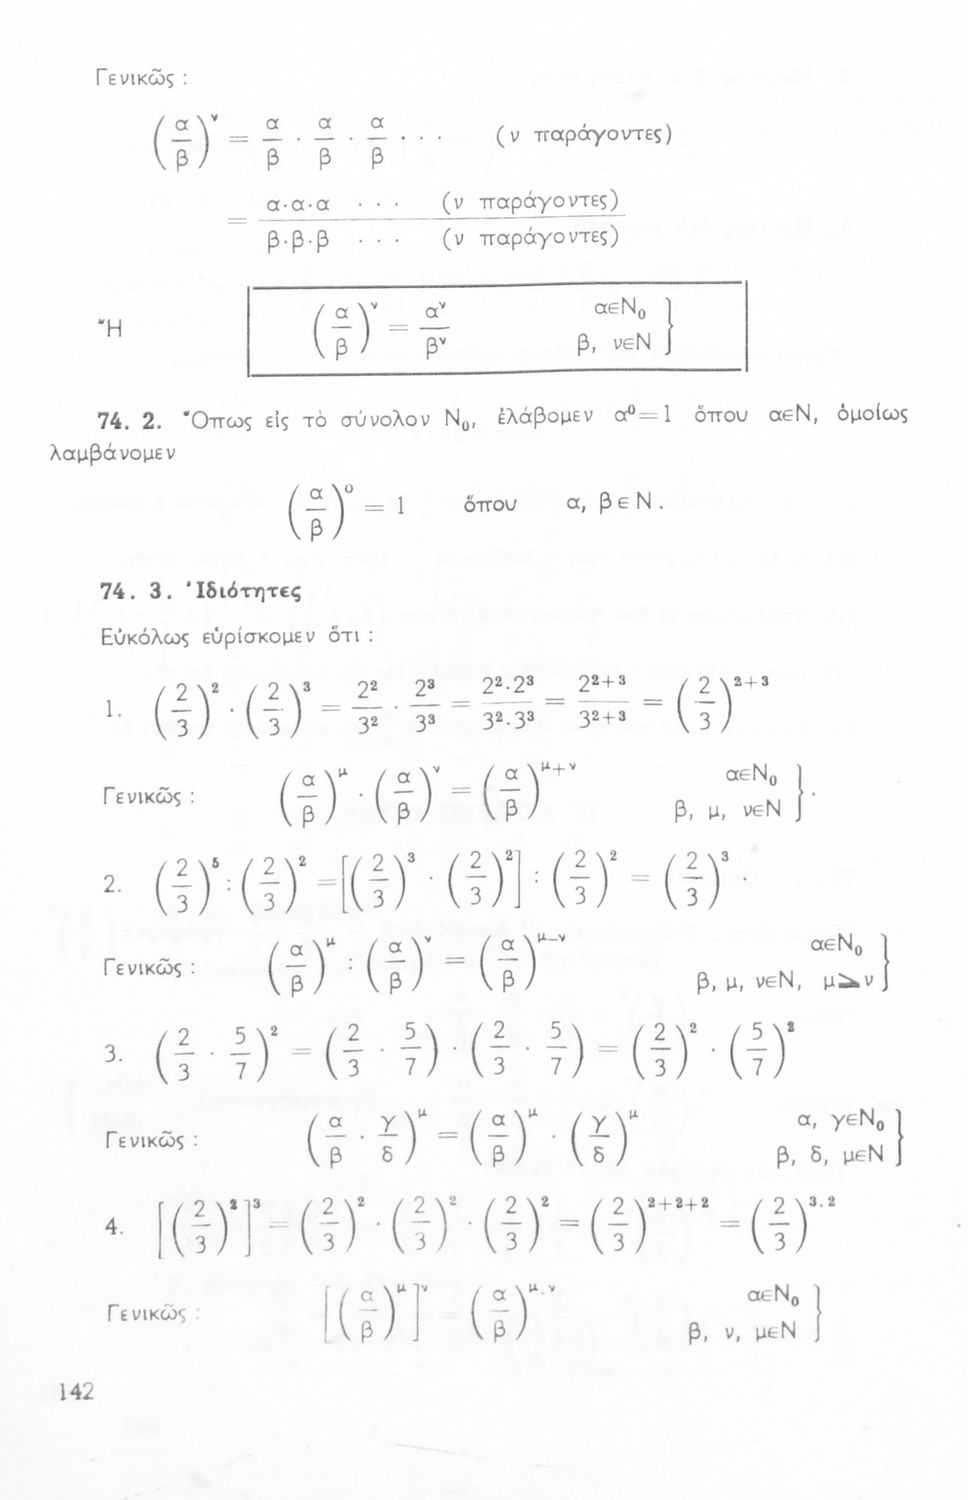 Γενικῶς :
(α/β)^ν = α/β · α/β · α/β (ν παράγοντες)
= α·α·α · · (ν παράγοντες)
β·β·β · · · (ν παράγοντες)
Ἢ (α/β)^ν = α^ν/β^ν αεN₀ β, νεN }
74. 2. Ὅπως εἰς τὸ σύνολον N₀, ἐλάβομεν α⁰=1 ὅπου αεN, ὁμοίως
λαμβάνομεν
(α/β)^0 = 1 ὅπου α, βεN.
74. 3. Ἰδιότητες
Εὐκόλως εὑρίσκομεν ὅτι :
1. (2/3)² · (2/3)³ = 2²/3² · 2³/3³ = 2²·2³/3²·3³ = 2²⁺³/3²⁺³ = (2/3)²⁺³
Γενικῶς : (α/β)^μ · (α/β)^ν = (α/β)^μ+ν αεN₀ β, μ, νεN } ·
2. (2/3)⁵ : (2/3)² = [(2/3)³ · (2/3)²] : (2/3)² = (2/3)³
Γενικῶς : (α/β)^μ : (α/β)^ν = (α/β)^μ–ν αεN₀ β, μ, νεN, μ⩾ν }
3. (2/3 · 5/7)² = (2/3 · 5/7) · (2/3 · 5/7) = (2/3)² · (5/7)²
Γενικῶς : (α/β · γ/δ)^μ = (α/β)^μ · (γ/δ)^μ α, γεN₀ β, δ, μεN }
4. [(2/3)²]³ = (2/3)² · (2/3)² · (2/3)² = (2/3)²⁺²⁺² = (2/3)^3.2
Γενικῶς : [(α/β)^μ]^ν = (α/β)^μ.ν αεN₀ β, ν, μεN }
142